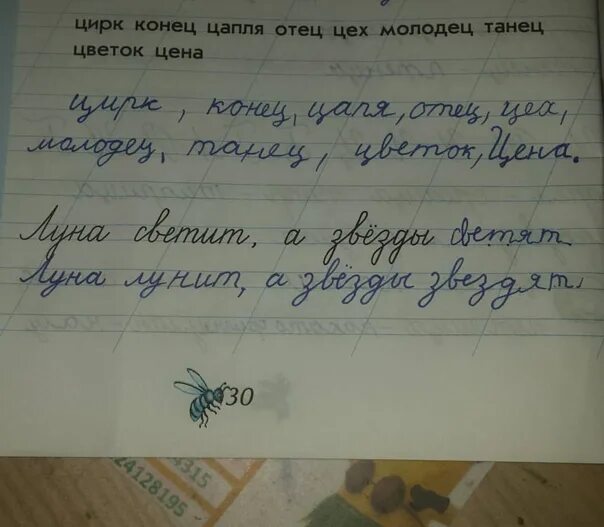 цирк конец цапля отец цех молодец танец
цветок цена
цирк, конец, цапя, отец, цех,
молодец, танец, цветок, Цена.
Луна светит, а звёзды светят.
Луна лунит, а звёзды звездят.
30
4315
24128195